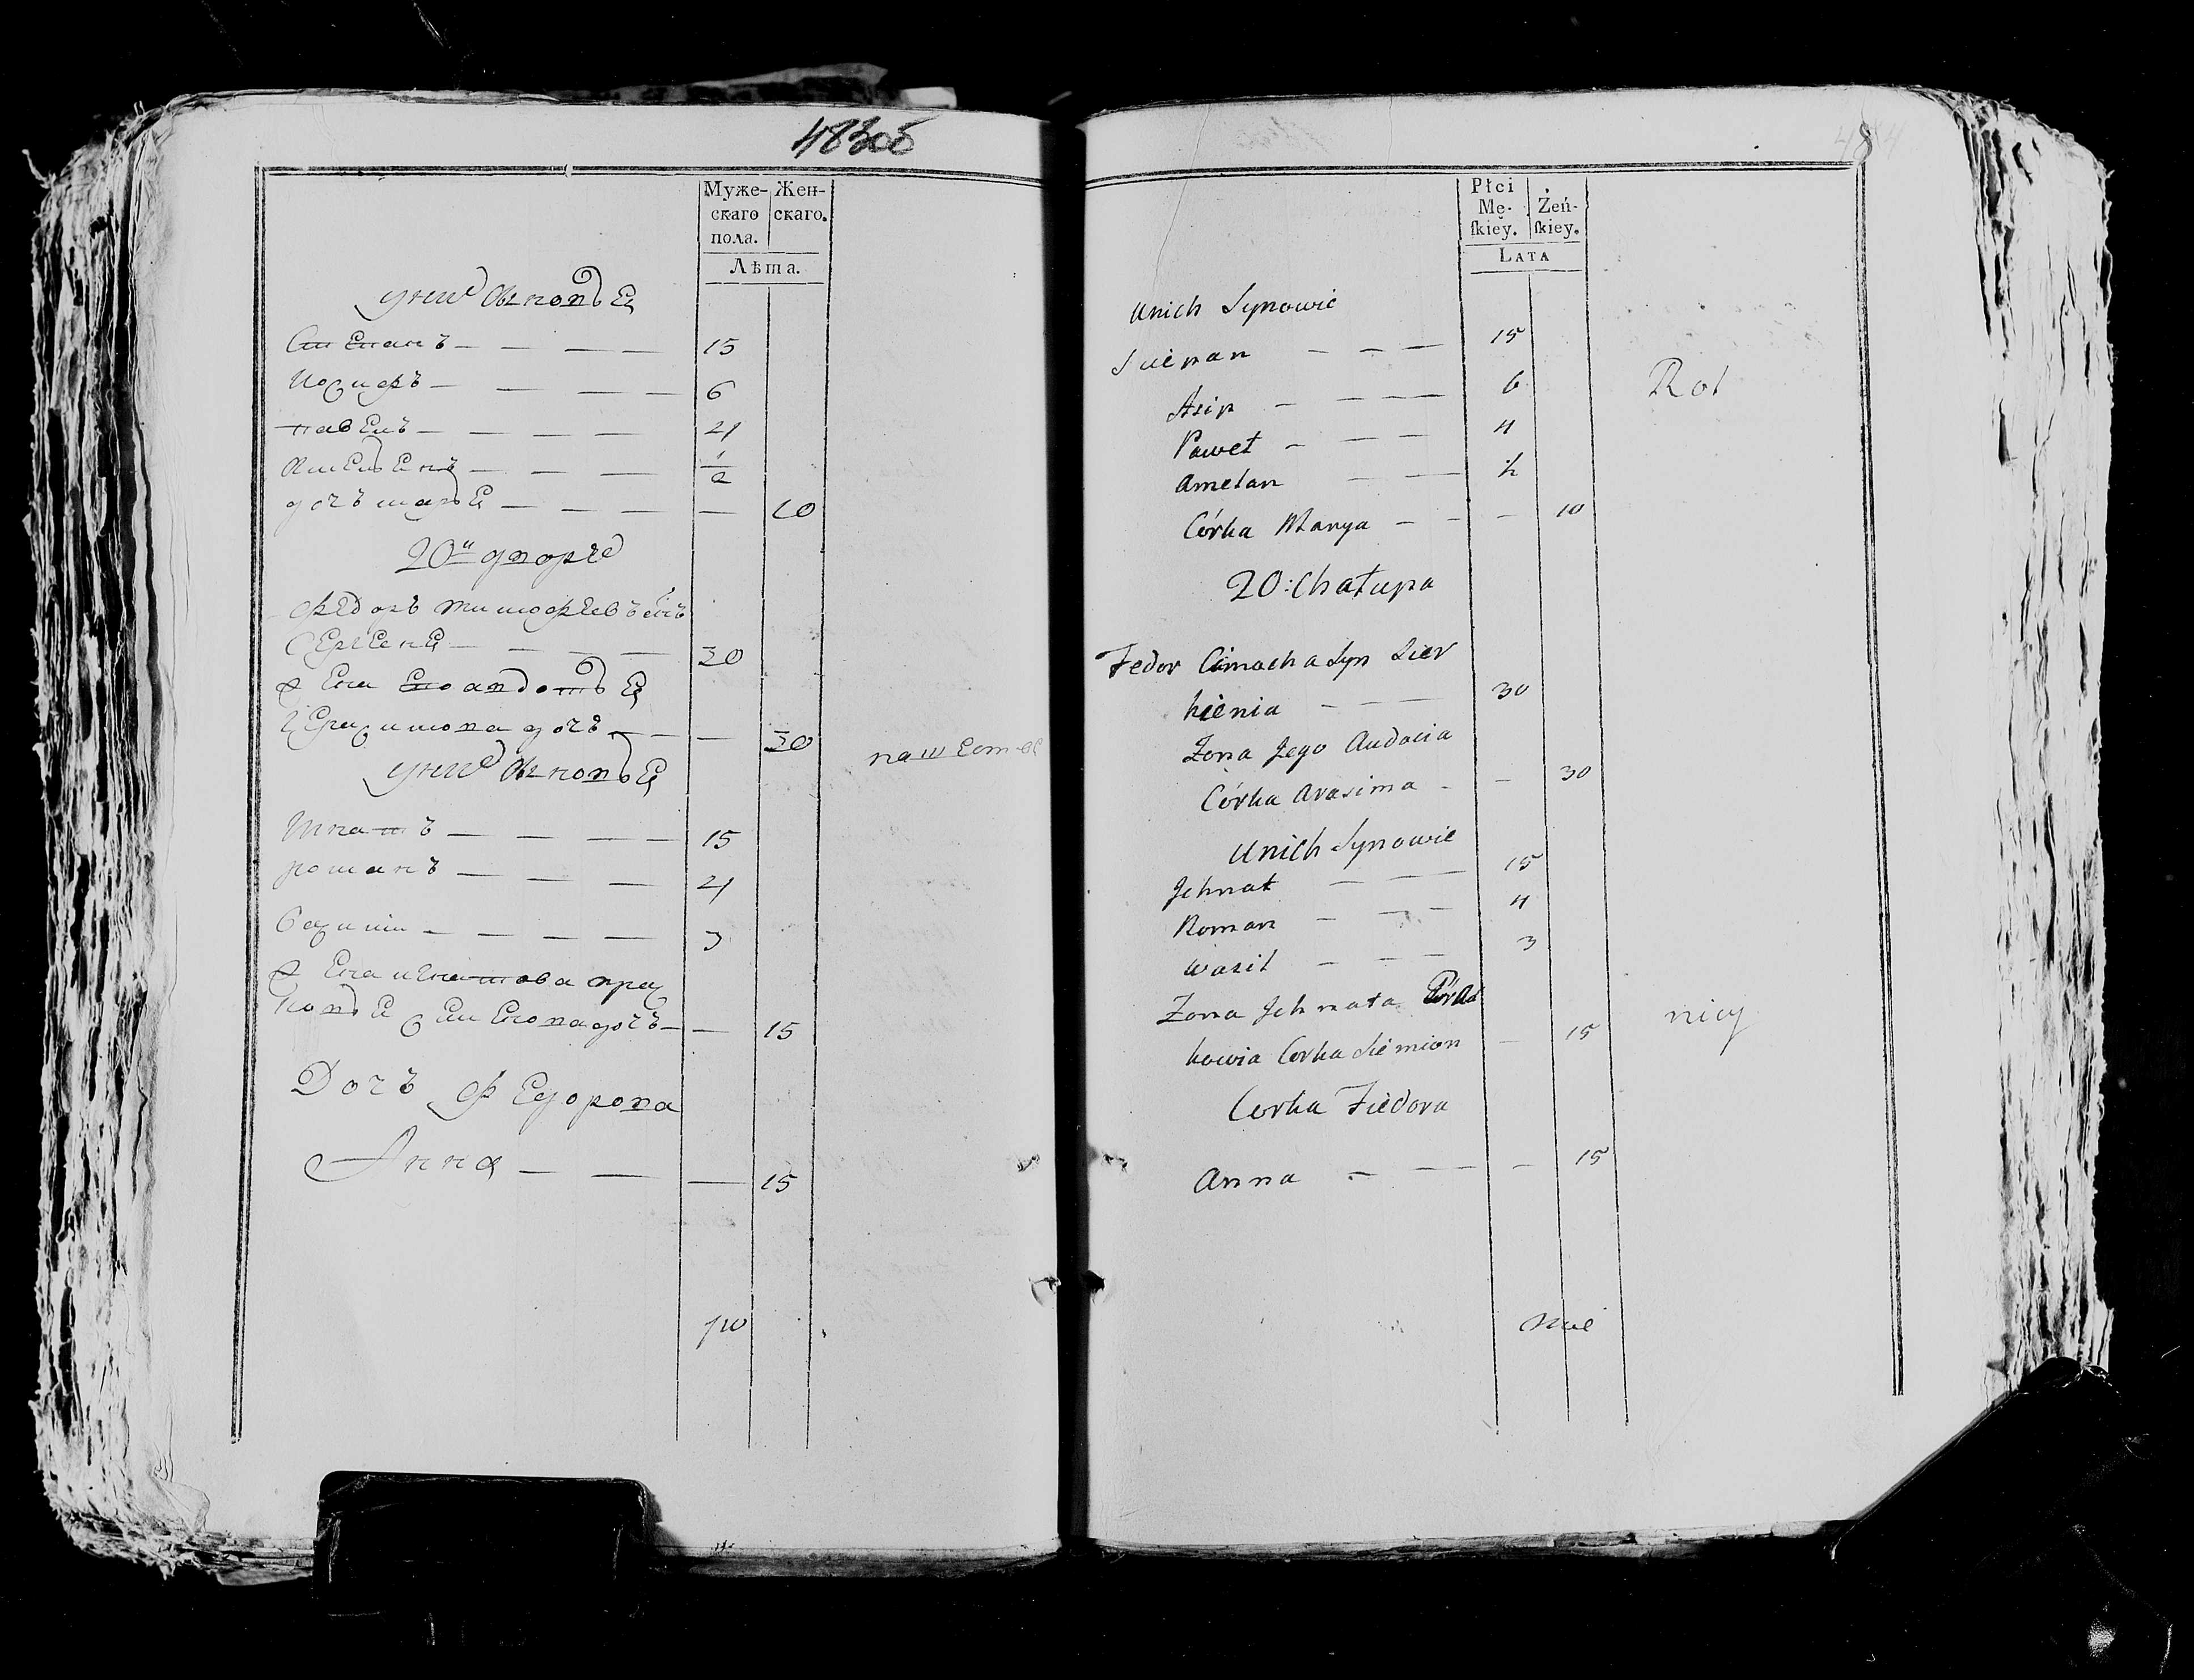 483об
Муже-
скаго
пола.
Жен-
скаго.
Лѣта.
унихъ сыновья
Степанъ — — — — 15
Иосифъ — — — — 6
павелъ — — — — 4
Амельянъ — — — 1/2
дочь марья — — — — 10
20й дворъ
Федоръ тимофѣевъ сынъ
Сергеня — — — — 30
жена его авдотья
Герасимова дочь — — — 30
унихъ сыновья
Игнатъ — — — — 15
романъ — — — 4
Василій — — — — 3
жена игнатова прас
ковья семенова дочь — — 15
Дочь Федорова
Анна — — — 15
484
Płci
Mę-
skiey.
Żeń-
skiey.
LATA
Unich Synowie
Sciepan — — — 15
Asip — — — — 6
Paweł — — — — 4
Amelan — — ½
Córka Marya — — — 10
20: Chałupa
Fedor Cimocha Syn Sier
hienia — — — 30
Zona Jego Audocia
Córka Arasima - — 30
Unich Synowie
Jehnat — — 15
Roman — — — 4
Wasil — — — 3
Zona Jehnata Pras
kowia Corka Siemion — 15
Corka Fiedora
Anna — — — 15